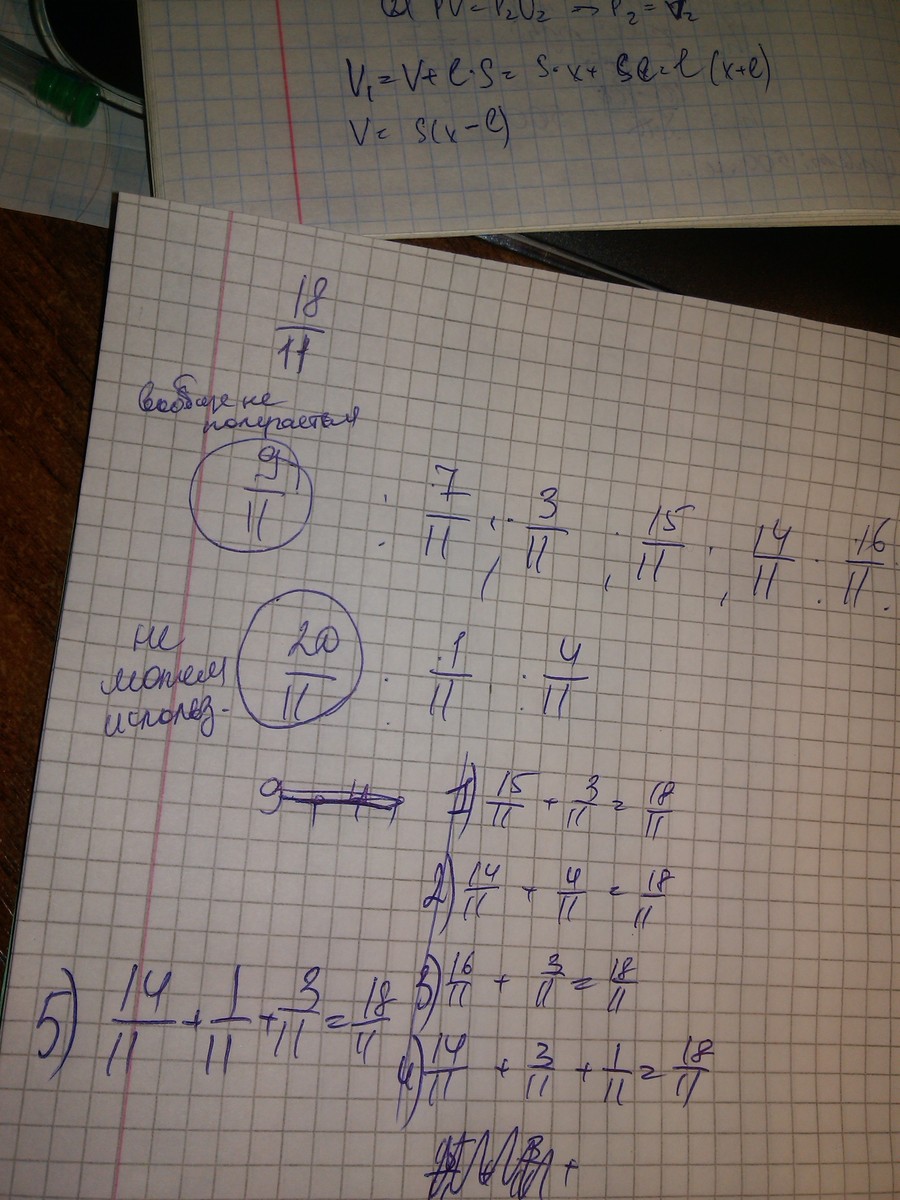 PV = P₂V₂ ⇒ P₂ =
V₁ = V + l·S = S·x + Sl = l (x+l)
V = S(x-l)
18/11
вообще не
получается
9/11 ; 7/11 ; 3/11 ; 15/11 ; 14/11 ; 16/11 .
не
можем
использ-
20/11 . 1/11 . 4/11
9
1) 15/11 + 3/11 = 18/11
2) 14/11 + 4/11 = 18/11
3) 16/11 + 3/11 = 18/11
4) 14/11 + 3/11 + 1/11 = 18/11
5) 14/11 + 1/11 + 3/11 = 18/11
+